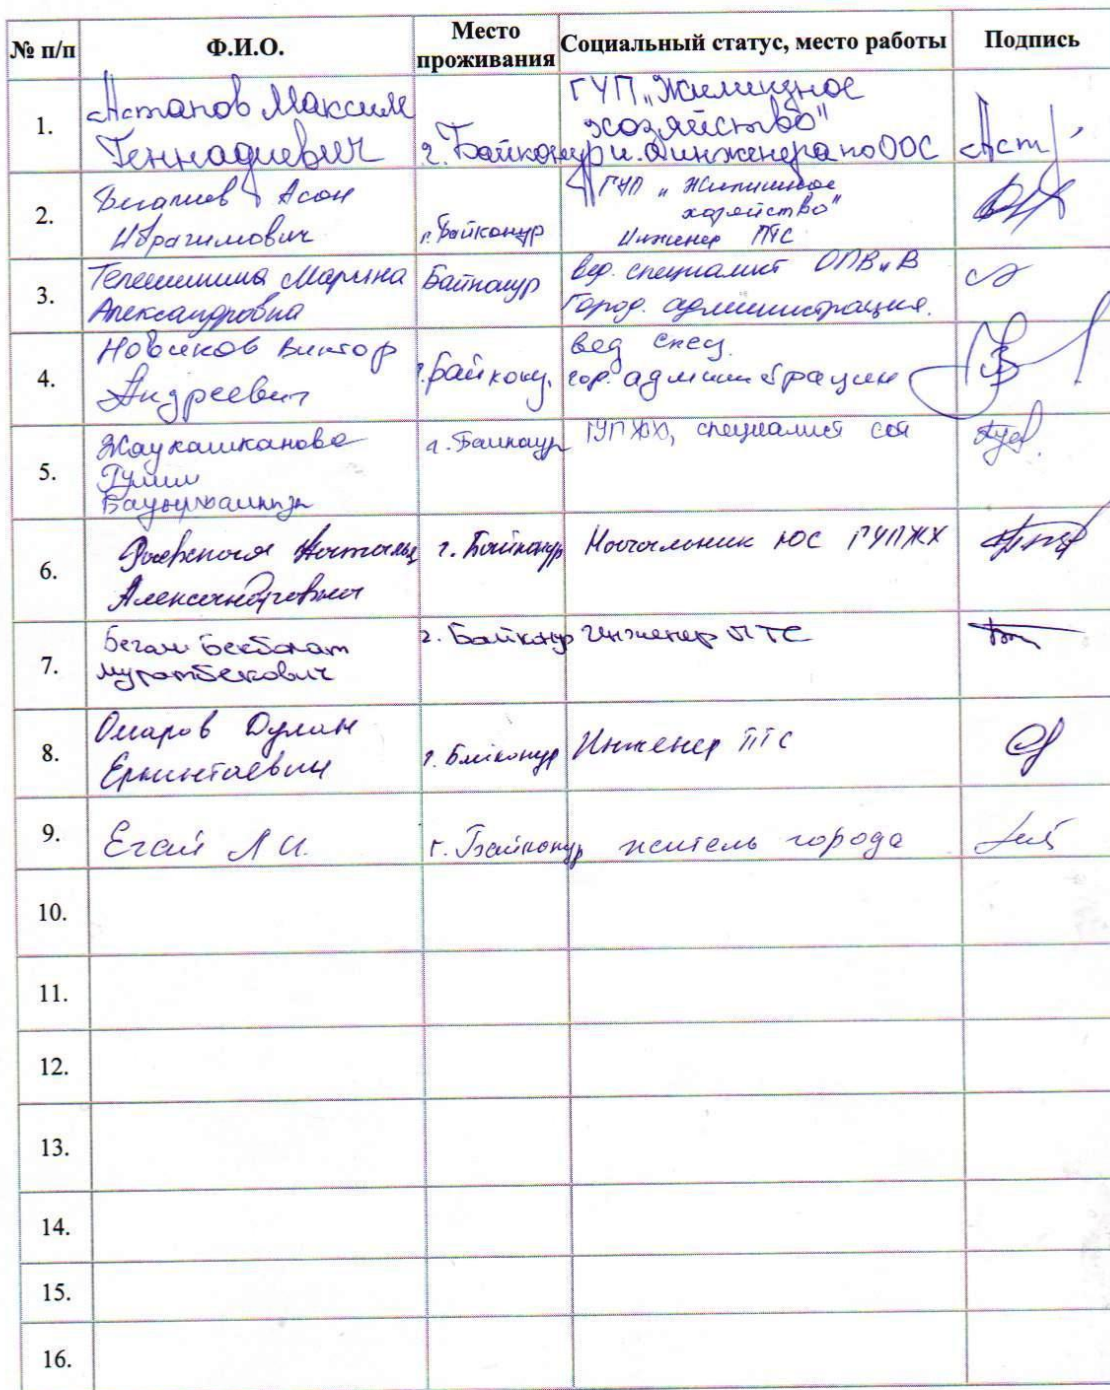 № п/п Ф.И.О. Место проживания Социальный статус, место работы Подпись
1. Астапов Максим Геннадиевич г. Байконур ГУП "Жилищное хозяйство" и.о. инженера по ООС Аст
2. Асан Ибрагимович г. Байконур ГУП "Жилищное хозяйство" Инженер ПТС
3. Марина Александровна Байконур вед. специалист ОПВиВ Город. администрация.
4. Новиков Виктор Андреевич г. Байконур. вед спец. гор. администрации
5. Жаукашканова г. Байконур ГУПЖХ, специалист
6. Наталья Александровна г. Байконур Начальник ЮС ГУПЖХ
7. Бекболат Муратбекович г. Байконур Инженер ПТС
8. Омаров Дулан г. Байконур Инженер ПТС
9. Егай Л И. г. Байконур житель города
10.
11.
12.
13.
14.
15.
16.